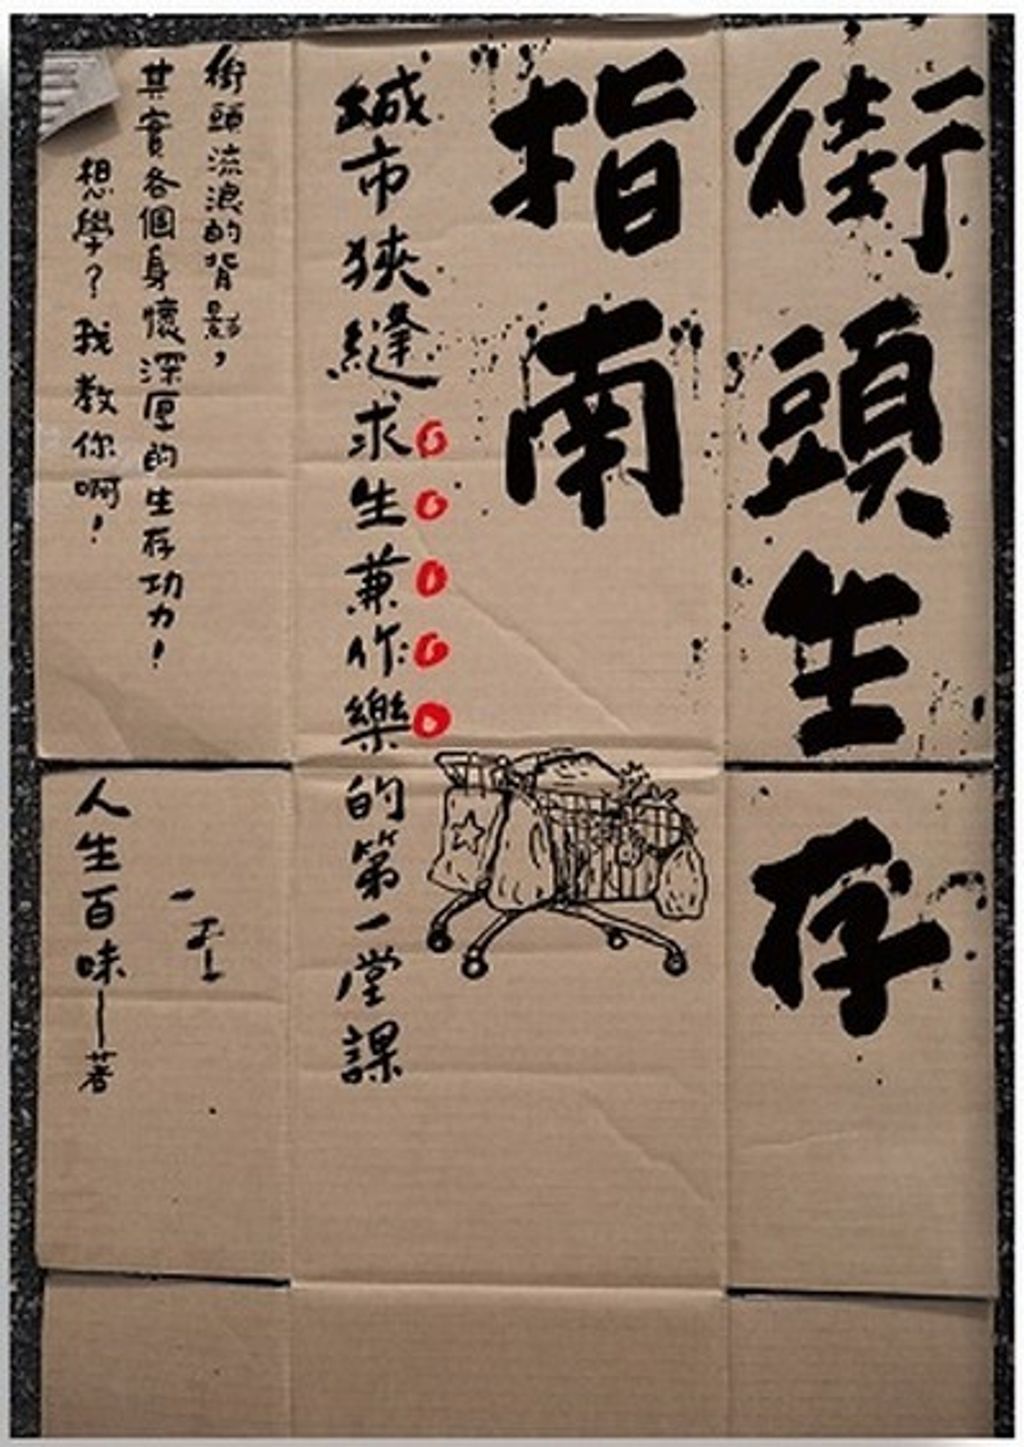 街頭生存
指南
城市狹縫求生兼作樂的第一堂課
街頭流浪的背影，
其實各個身懷深厚的生存功力！
想學？我教你啊！
人生百味——著